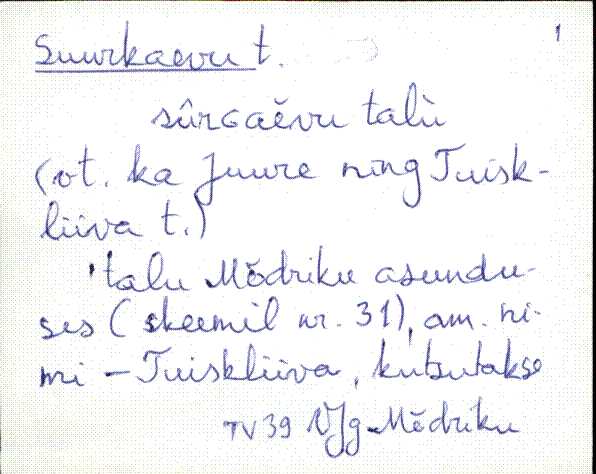 1
Suurkaevu t.
sûrGaěvu talù
(vt. ka Juure ning Tuisk-
liiva t.)
talu Mõdriku asundu-
ses (skeemil nr. 31), am. ni-
mi – Tuiskliiva, kutsutakse
TV39 VJg Mõdriku